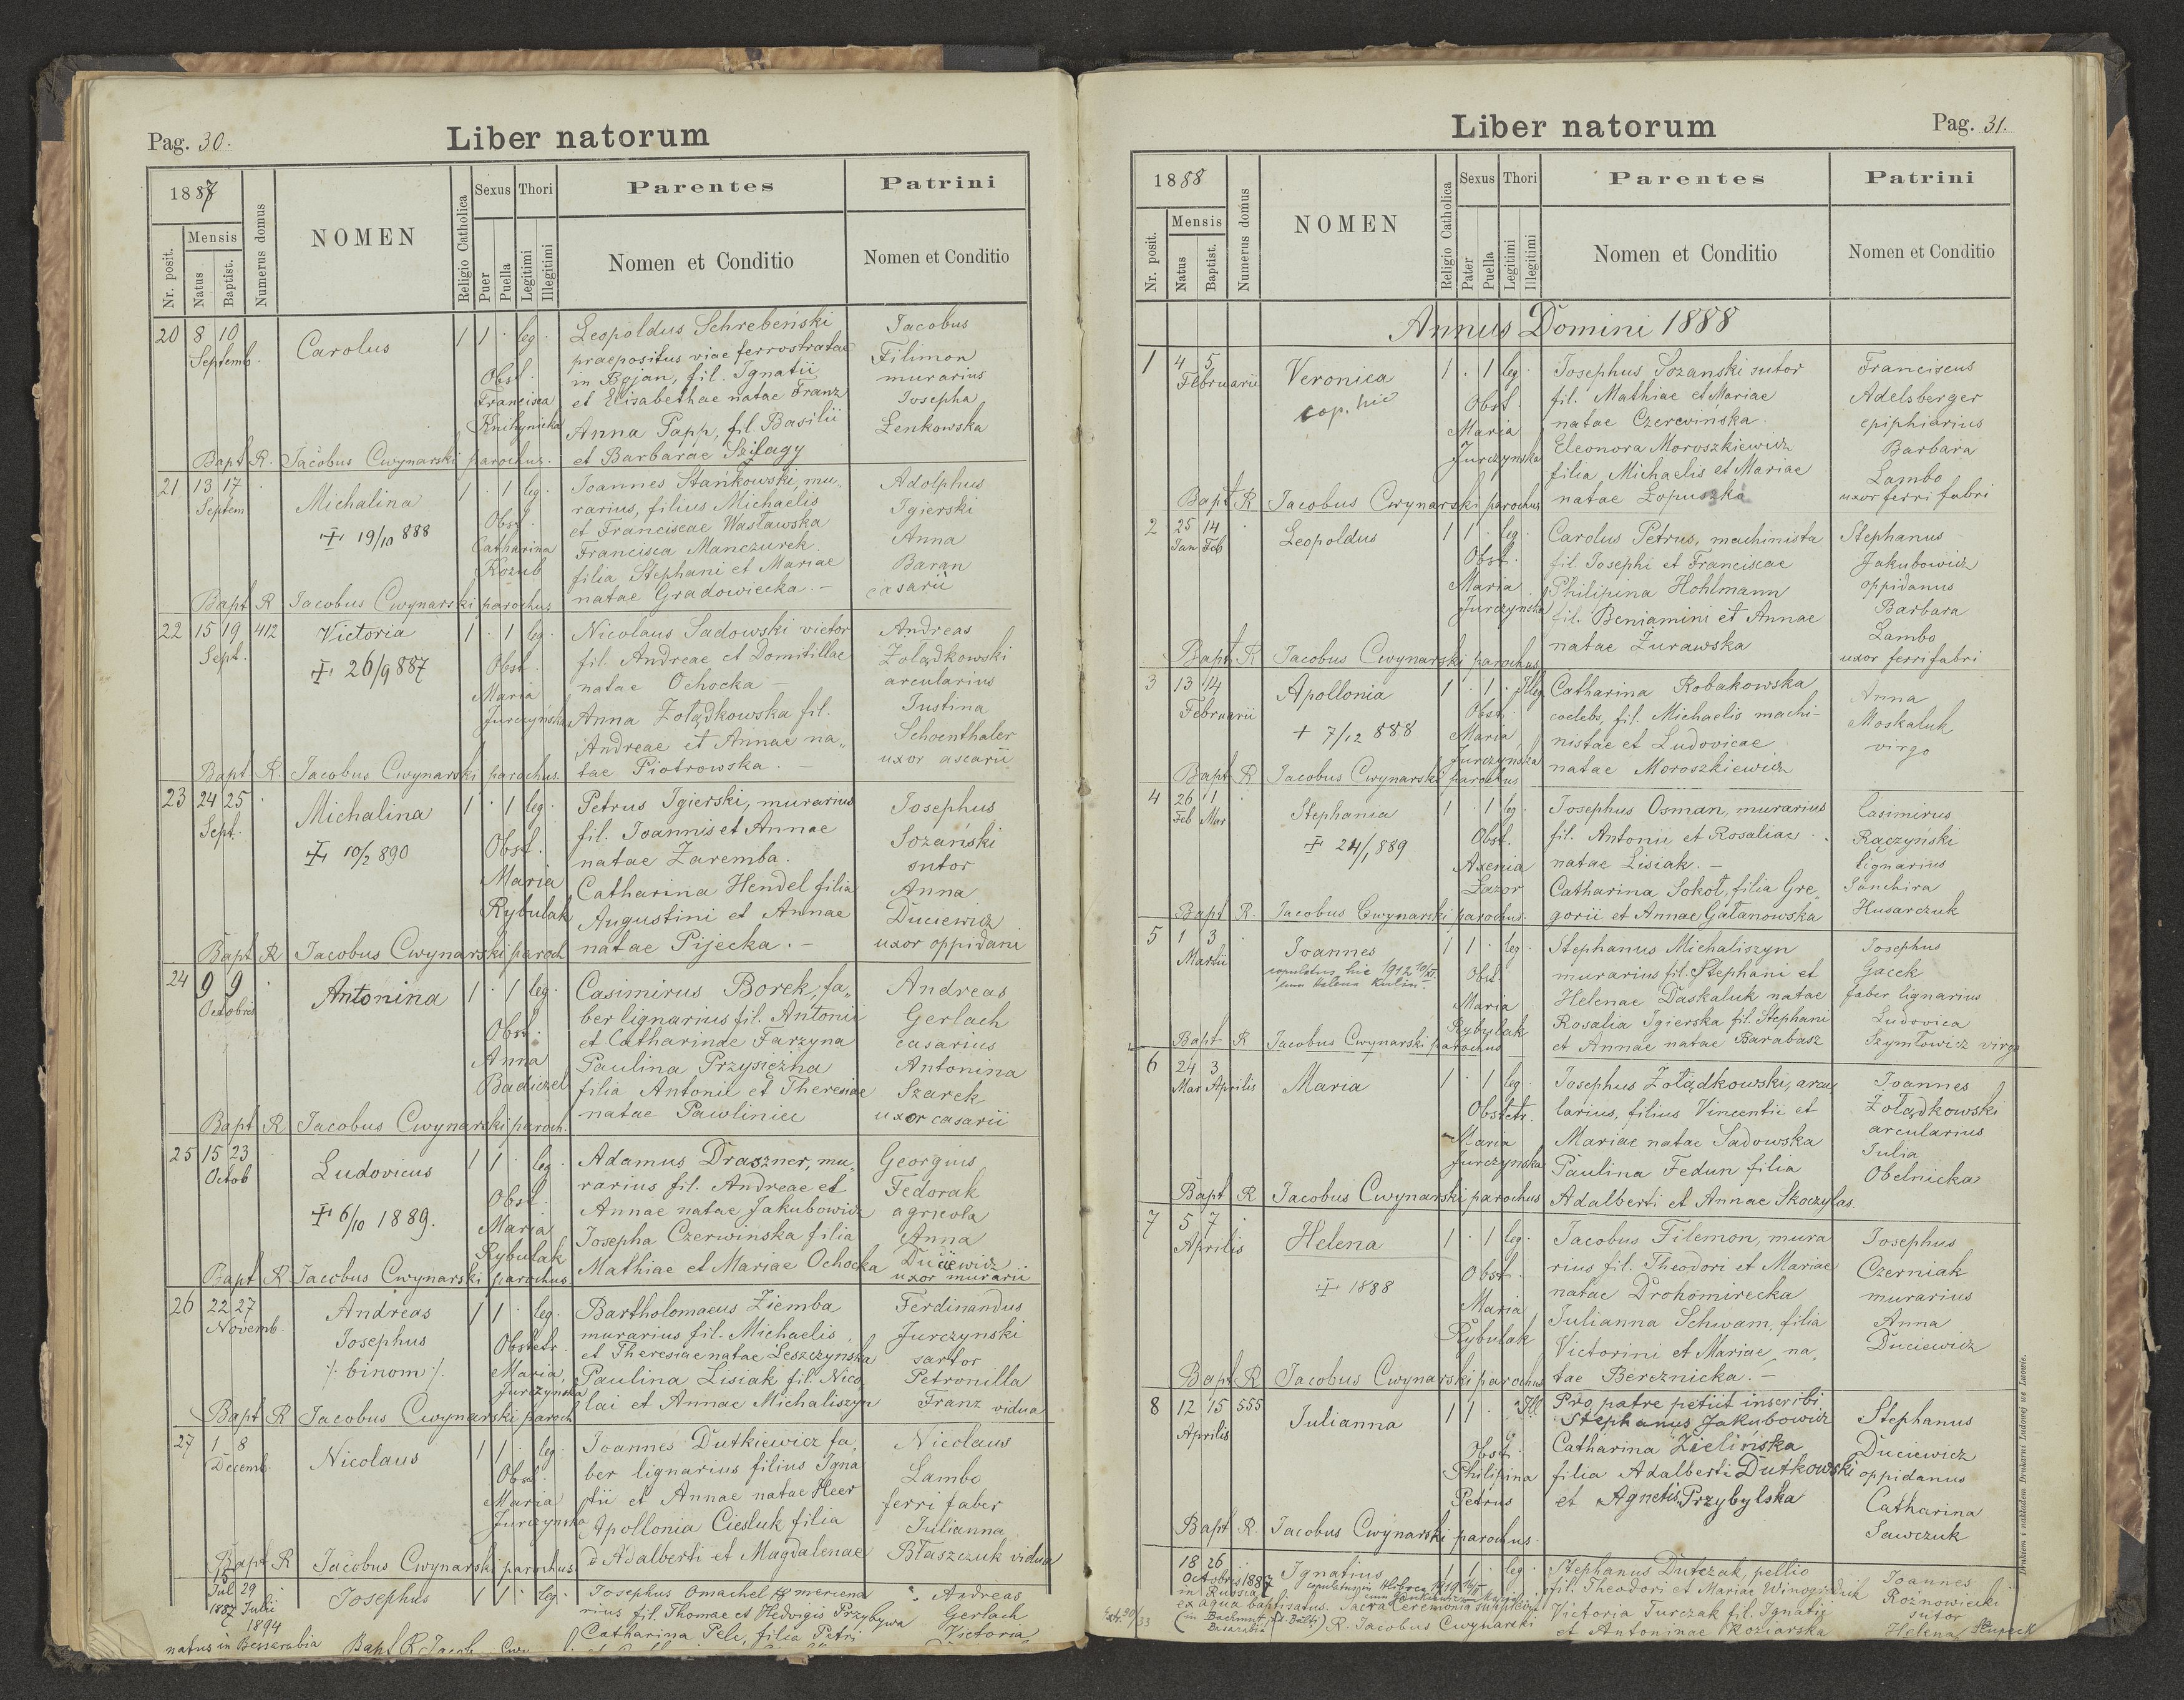 Pag. 30.
Liber natorum
1887
Nr. posit.
Mensis
Natus
Baptist.
Numerus domus
NOMEN
Religio Catholica
Sexus
Puer
Puella
Thori
Legitimi
Illegitimi
Parentes
Nomen et Conditio
Patrini
Nomen et Conditio
20 8 10 Carolus 1 1 · leg. Leopoldus Schrebeński Jacobus
Septemb. praepositus viae ferrostratae Filimon
Obst. in Bojan, fil. Ignatii murarius
Francisca et Elisabethae natae Franz Josepha
Knihynicka Anna Papp, fil. Basilii Zenkowska
Bapt R. Jacobus Cwynarski parochus. et Barbarae Szilagy
21 13 17 Michalina 1 · 1 leg. Joannes Stańkowski, mu„ Adolphus
Septem rarius, filius Michaelis Igierski
19/10 888 Obst. et Franciscae Wasławska Anna
Catharina Francisca Manczurek Baran
Kozub filia Stephani et Mariae casarii
Bapt R Jacobus Cwynarski parochus natae Gradowiecka. –
22 15 19 412 Victoria 1 · 1 leg. Nicolaus Sadowski vietor Andreas
Sept. fil. Andreae et Domitillae Żolądkowski
26/9 887 Obst. natae Ochocka – arcularius
Maria Anna Żołądkowska fil. Justina
Jurczyńska Andreae et Annae na„ Schoenthaler
Bapt R. Jacobus Cwynarski parochus. tae Piotrowska. – uxor ascarii
23 24 25 Michalina 1 · 1 leg. Petrus Igierski, murarius Josephus
Sept. fil. Joannis et Annae Sozański
10/2 890 Obst. natae Zaremba. sutor
Maria Catharina Hendel filia Anna
Rybulak Augustini et Annae Duciewicz
Bapt R Jacobus Cwynarski paroch natae Pijecka. – uxor oppidani
24 9 9 Antonina 1 · 1 leg. Casimirus Borek, fa„ Andreas
Octobris ber lignarius fil. Antonii Gerlach
Obst. et Catharinae Farzyna casarius
Anna Paulina Przysiężna Antonina
Badiczel filia Antonii et Theresiae Szarek
Bapt R Jacobus Cwynarski paroch. natae Pawliniec uxor casarii
25 15 23 Ludovicus 1 1 · leg. Adamus Draszner, mu„ Georgius
Octob rarius fil. Andreae et Fedorak
6/10 1889. Obst. Annae natae Jakubowicz agricola
Maria Josepha Czerwinska filia Anna
Rybulak Mathiae et Mariae Ochocka Duciewicz
Bapt R Jacobus Cwynarski parochus uxor murarii
26 22 27 Andreas 1 1 leg. Bartholomaeus Ziemba Ferdinandus
Novemb. Josephus murarius fil. Michaelis Jurczynski
Obstetr. et Theresiae natae Leszczynska sartor
·/· binom ·/· Maria, Paulina Lisiak fil. Nico„ Petronilla
Jurczynska lai et Annae Michaliszyn Franz vidua
Bapt R Jacobus Cwynarski paroch
27 1 8 Nicolaus 1 1 · leg. Joannes Dutkiewicz fa„ Nicolaus
Decemb. ber lignarius filius Igna Lambo
Obst. tii et Annae natae Heer ferri faber
Maria Apollonia Ciesluk filia Julianna
Jurczynska Adalberti et Magdalenae Błaszczuk vidua
Bapt R Jacobus Cwynarski parochus
15 Jul 29 Josephus 1 1 · leg. Josephus Omachel Andreas
1887 Julii rius fil. Thomae et Hedvigis Przybywa Gerlach
1894 Catharina Pele filia Petri Victoria
natus in Bessarabia Bapt R Jacob
Liber natorum
Pag. 31.
1888
Nr. posit.
Mensis
Natus
Baptist.
Numerus domus
NOMEN
Religio Catholica
Sexus
Pater
Puella
Thori
Legitimi
Illegitimi
Parentes
Nomen et Conditio
Patrini
Nomen et Conditio
Annus Domini 1888
1 4 5 Veronica 1 · 1 leg. Josephus Sozanski sutor Franciscus
Februarii cop. hic fil. Mathiae et Mariae Adelsberger
Obst. natae Czerwińska epiphiarius
Maria Eleonora Moroszkiewicz Barbara
Jurczynska filia Michaelis et Mariae Lambo
Bapt R Jacobus Cwynarski parochus natae Łopuszka uxor ferri fabri
2 25 14 Leopoldus 1 1 · leg. Carolus Petrus, machinista Stephanus
Jan Feb fil. Josephi et Franciscae Jakubowicz
Obst. Philipina Hohlmann oppidanus
Maria fil. Beniamini et Annae Barbara
Jurczynska natae Żurawska Lambo
Bapt R Jacobus Cwynarski parochus uxor ferrifabri
3 13 14 Apollonia 1 · 1 · Illeg Catharina Robakowska Anna
Februarii coelebs, fil. Michaelis machi– Moskaluk
+ 7/12 888 Obst. nistae et Ludovicae virgo
Maria Jurczynska natae Moroszkiewicz
Bapt R Jacobus Cwynarski parochus
4 26 1 Stephania 1 · 1 leg. Josephus Osman, murarius Casimirus
Feb Mar fil. Antonii et Rosaliae Raczyński
24/1 889 Obst. natae Lisiak. – lignarius
Axenia Catharina Sokoł, filia Gre„
Łazor gorii et Annae Gałanowska Husarczuk
Bapt R. Jacobus Cwynarski parochus.
5 1 3 Joannes 1 1 · leg. Stephanus Michaliszyn Josephus
Martii copulatus hic 1912 10/XI murarius fil. Stephani et Gacek
cum Helena Kulin. Obst. Helenae Daskaluk natae faber lignarius
Maria Rosalia Igierska fil. Stephani Ludovica
Rybulak et Annae natae Barabasz Szymłowicz virgo
Bapt R Jacobus Cwynarski parochus
6 24 3 Maria 1 · 1 leg. Josephus Żołądkowski, arcu„ Joannes
Mar Aprilis larius, filius Vincentii et Żołądkowski
Obstetr. Mariae natae Sadowska arcularius
Maria Paulina Fedun filia Julia
Jurczynska Adalberti et Annae Skoczylas. Obelnicka
Bapt R Jacobus Cwynarski parochus
7 5 7 Helena 1 · 1 leg. Jacobus Filemon, mura Josephus
Aprilis rius fil. Theodori et Mariae Czerniak
1888 Obst. natae Drohomirecka murarius
Maria Julianna Schwam, filia Anna
Rybulak Victorini et Mariae na„ Duciewicz
Bapt R Jacobus Cwynarski parochus tae Bereznicka. –
8 12 15 555 Julianna 1 1 · Ill Pro patre petiit inscribi Stephanus
Aprilis Stephanus Jakubowicz Duciewicz
Obst. Catharina Zielińska oppidanus
Philipina filia Adalberti Dutkowski Catharina
Petrus et Agnetis Przybylska Sawczuk
Bapt R. Jacobus Cwynarski parochus.
18 26 Ignatius 1 1 · leg. Stephanus Dutczak, pellio Joannes
Octobris 1887 fil. Theodori et Mariae Roznowiecki
in Russia Victoria Turczak fil. Ignatii sutor
ex aqua baptisatus. Sacra Ceremonia et Antoninae Koziarska Helena
R. Jacobus Cwynarski
Drukiem i nakładem Drukarni Ludowej we Lwowie.